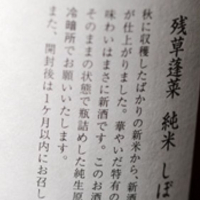 残草蓬莱 純米 しぼ
秋に収穫したばかりの新米から、新酒
が仕上がりました。華やいだ特有の
味わいはまさに新酒です。このお酒
そのままの状態で瓶詰めした純生原
冷暗所でお願いいたします。
また、開封後は1ケ月以内にお召し